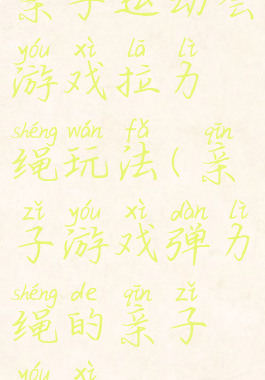 亲子运动会
yóu xì lā lì
游戏拉力
shéng wán fǎ qīn
绳玩法(亲
zǐ yóu xì dàn lì
子游戏弹力
shéng de qīn zǐ
绳的亲子
yóu xì